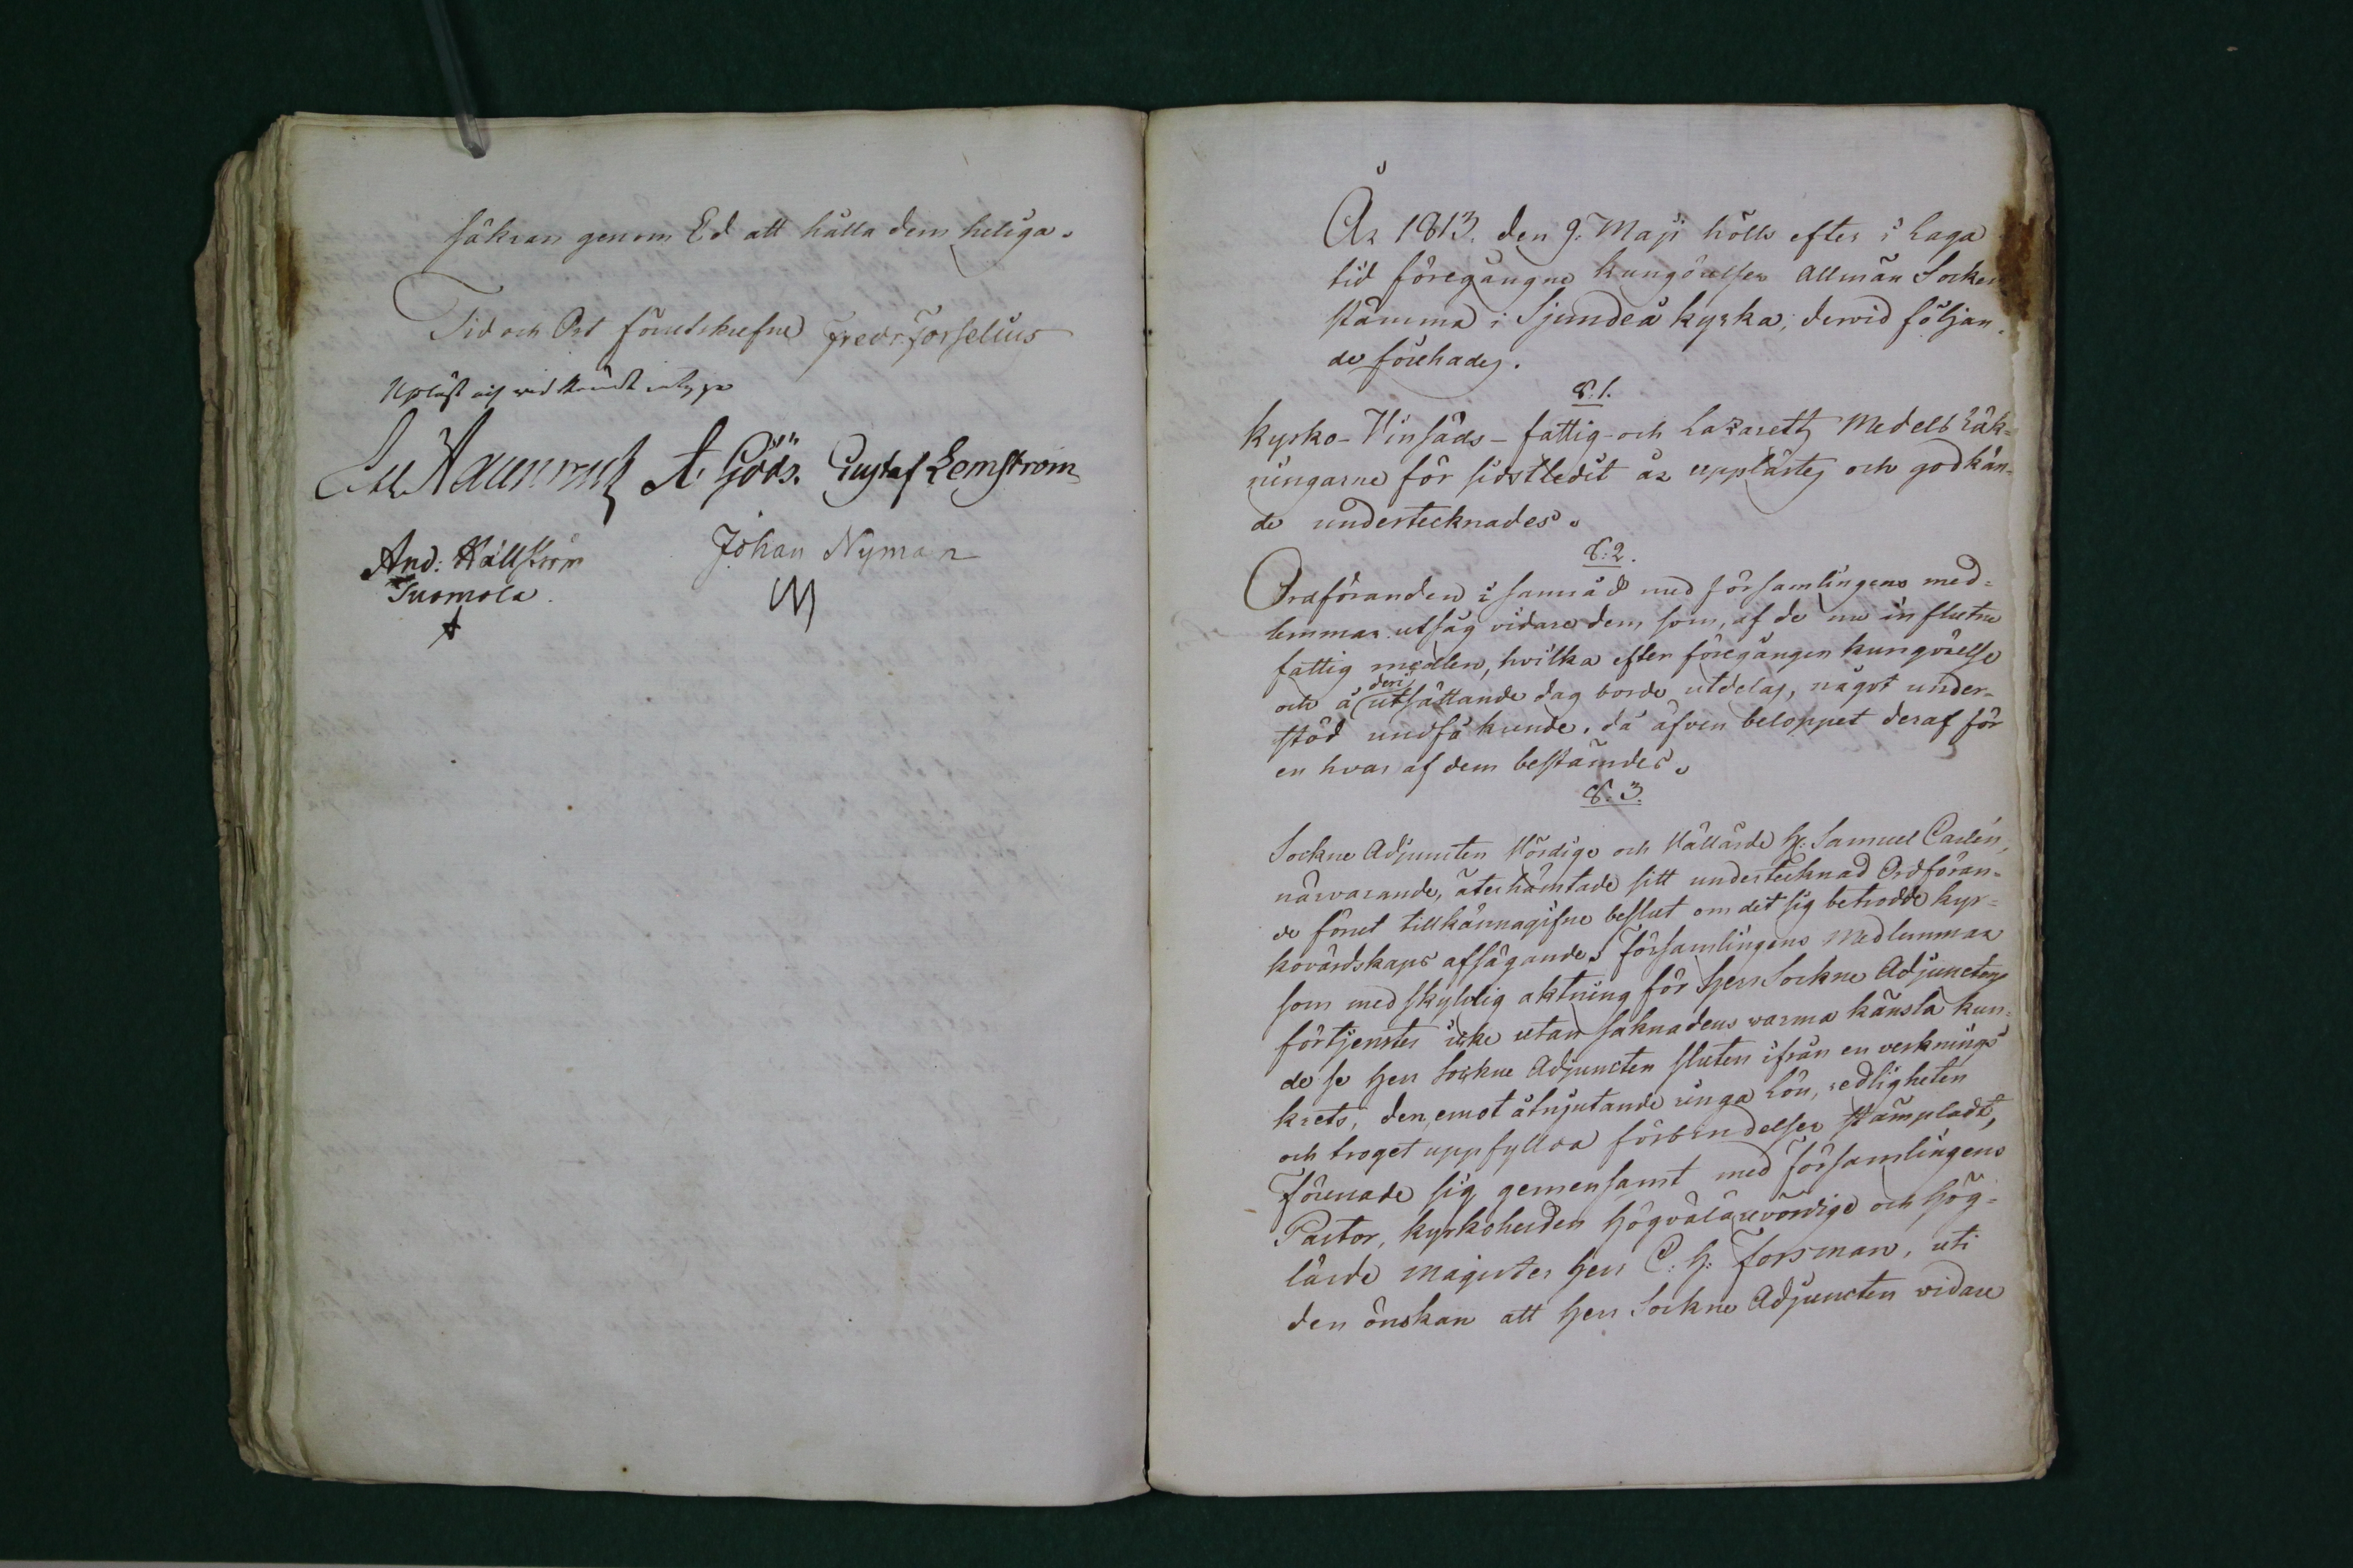 säkran genom Ed att hålla dem heliga.
Tid och Ort förutskrefne Fredr. Forselius
Upläst och vidkändt intyga
A. Göös. Gustaf Lemström
And: Hällström Johan Nyman
Suomola.
År 1813. den 9. Maji hölls efter i Laga
tid föregångne kungörelser Allmän Socken
stämma i Sjundeå kyrka, dervid följan-
de förehades.
§. 1.
Kyrko- Vinsäds- fattig- och Lazaretts Medels Räk-
ningarne för sidstledit år upplästes och godkän-
de undertecknades.
§. 2.
Ordföranden i samråd med församlingens med-
lemmar utsåg vidare dem som, af de nu influtne
fattig medlen, hvilka efter föregången kungörelse
och å deri utsättande dag borde utdelas, något under-
stöd undfå kunde, då äfven beloppet deraf för
en hvar af dem bestämdes.
§. 3.
Sockne Adjuncten Vördige och Vällärde H: Samuel Carlén,
närvarande, återhämtade sitt undertecknad Ordföran-
de förut tillkännagifne beslut om det sig betrodde kyr-
kovärdskaps afsägande. Församlingens Medlemmar
som med skyldig aktning för Herr Sockne Adjunctens
förtjenster icke utan saknadens varma känsla kun-
de se Herr Sockne Adjuncten sluten ifrån en verknings
krets, den, emot åtnjutande ringa Lön, redligheten
och troget uppfyllda förbindelser stämplat,
förenade sig gemensamt med församlingens
Pastor, kyrkoherden Högvälärevördige och Hög-
lärde Magister Herr C: H: Forsman, uti
den önskan att Herr Sockne Adjuncten vidare